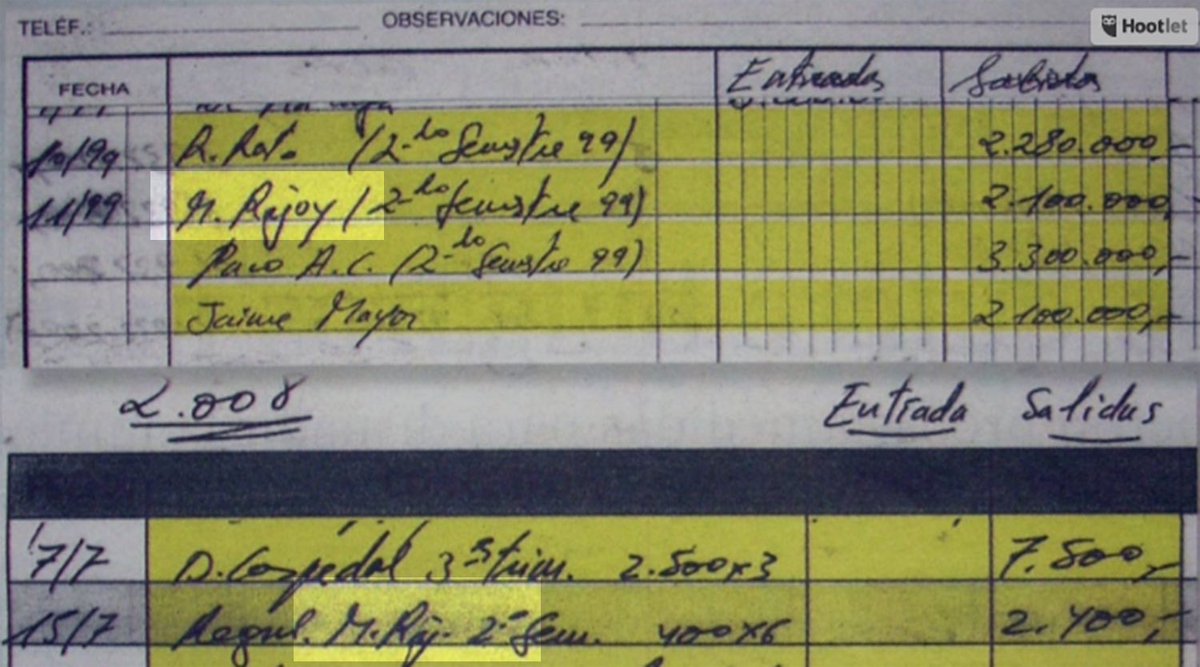 TELÉF.: OBSERVACIONES:
Hootlet
FECHA Entradas Salidas
10/99 R. Rato (2-do Semestre 99) 2.280.000,-
11/99 M. Rajoy (2-do Semestre 99) 2.100.000,
Paco A.C. (2-do Semestre 99) 3.300.000,-
Jaime Mayor 2.100.000,-
2.008 Entrada Salidas
17/7 D. Cospedal 3er trim. 2.500x3 7.500,-
15/7 Regul. M. Raj. 2º Sem. 400x6 2.400,-